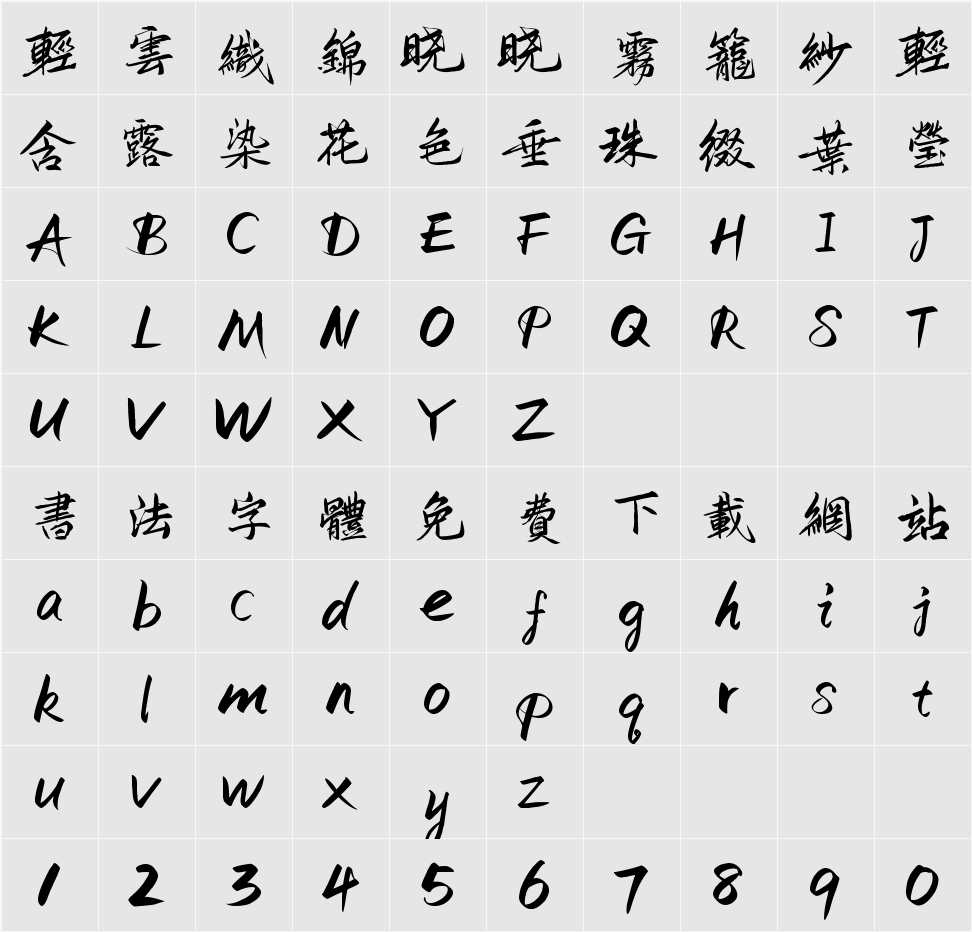 輕 雲 織 錦 晓 晓 霧 籠 紗 輕
含 露 染 花 色 垂 珠 缀 葉 瑩
A B C D E F G H I J
K L M N O P Q R S T
U V W X Y Z
書 法 字 體 免 費 下 載 網 站
a b c d e f g h i j
k l m n o p q r s t
u v w x y z
1 2 3 4 5 6 7 8 9 0